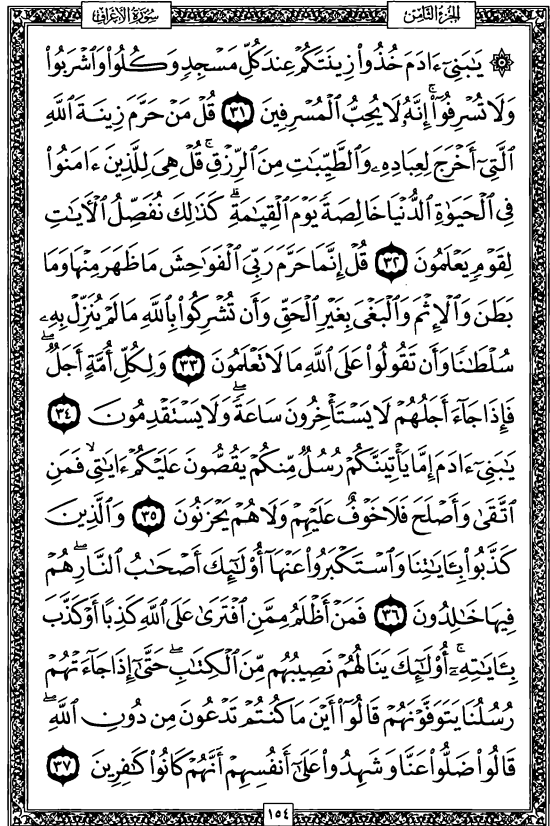 سُورَةُ الأَعْرَافِ
الجُزْءُ الثَّامِنُ
۞ يَٰبَنِيٓ ءَادَمَ خُذُواْ زِينَتَكُمۡ عِندَ كُلِّ مَسۡجِدٖ وَكُلُواْ وَٱشۡرَبُواْ
وَلَا تُسۡرِفُوٓاْۚ إِنَّهُۥ لَا يُحِبُّ ٱلۡمُسۡرِفِينَ ٣١ قُلۡ مَنۡ حَرَّمَ زِينَةَ ٱللَّهِ
ٱلَّتِيٓ أَخۡرَجَ لِعِبَادِهِۦ وَٱلطَّيِّبَٰتِ مِنَ ٱلرِّزۡقِۚ قُلۡ هِيَ لِلَّذِينَ ءَامَنُواْ
فِي ٱلۡحَيَوٰةِ ٱلدُّنۡيَا خَالِصَةٗ يَوۡمَ ٱلۡقِيَٰمَةِۗ كَذَٰلِكَ نُفَصِّلُ ٱلۡأٓيَٰتِ
لِقَوۡمٖ يَعۡلَمُونَ ٣٢ قُلۡ إِنَّمَا حَرَّمَ رَبِّيَ ٱلۡفَوَٰحِشَ مَا ظَهَرَ مِنۡهَا وَمَا
بَطَنَ وَٱلۡإِثۡمَ وَٱلۡبَغۡيَ بِغَيۡرِ ٱلۡحَقِّ وَأَن تُشۡرِكُواْ بِٱللَّهِ مَا لَمۡ يُنَزِّلۡ بِهِۦ
سُلۡطَٰنٗا وَأَن تَقُولُواْ عَلَى ٱللَّهِ مَا لَا تَعۡلَمُونَ ٣٣ وَلِكُلِّ أُمَّةٍ أَجَلٞۖ
فَإِذَا جَآءَ أَجَلُهُمۡ لَا يَسۡتَأۡخِرُونَ سَاعَةٗ وَلَا يَسۡتَقۡدِمُونَ ٣٤
يَٰبَنِيٓ ءَادَمَ إِمَّا يَأۡتِيَنَّكُمۡ رُسُلٞ مِّنكُمۡ يَقُصُّونَ عَلَيۡكُمۡ ءَايَٰتِي فَمَنِ
ٱتَّقَىٰ وَأَصۡلَحَ فَلَا خَوۡفٌ عَلَيۡهِمۡ وَلَا هُمۡ يَحۡزَنُونَ ٣٥ وَٱلَّذِينَ
كَذَّبُواْ بِـَٔايَٰتِنَا وَٱسۡتَكۡبَرُواْ عَنۡهَآ أُوْلَٰٓئِكَ أَصۡحَٰبُ ٱلنَّارِۖ هُمۡ
فِيهَا خَٰلِدُونَ ٣٦ فَمَنۡ أَظۡلَمُ مِمَّنِ ٱفۡتَرَىٰ عَلَى ٱللَّهِ كَذِبًا أَوۡ كَذَّبَ
بِـَٔايَٰتِهِۦٓۚ أُوْلَٰٓئِكَ يَنَالُهُمۡ نَصِيبُهُم مِّنَ ٱلۡكِتَٰبِۖ حَتَّىٰٓ إِذَا جَآءَتۡهُمۡ
رُسُلُنَا يَتَوَفَّوۡنَهُمۡ قَالُوٓاْ أَيۡنَ مَا كُنتُمۡ تَدۡعُونَ مِن دُونِ ٱللَّهِۖ
قَالُواْ ضَلُّواْ عَنَّا وَشَهِدُواْ عَلَىٰٓ أَنفُسِهِمۡ أَنَّهُمۡ كَانُواْ كَٰفِرِينَ ٣٧
١٥٤